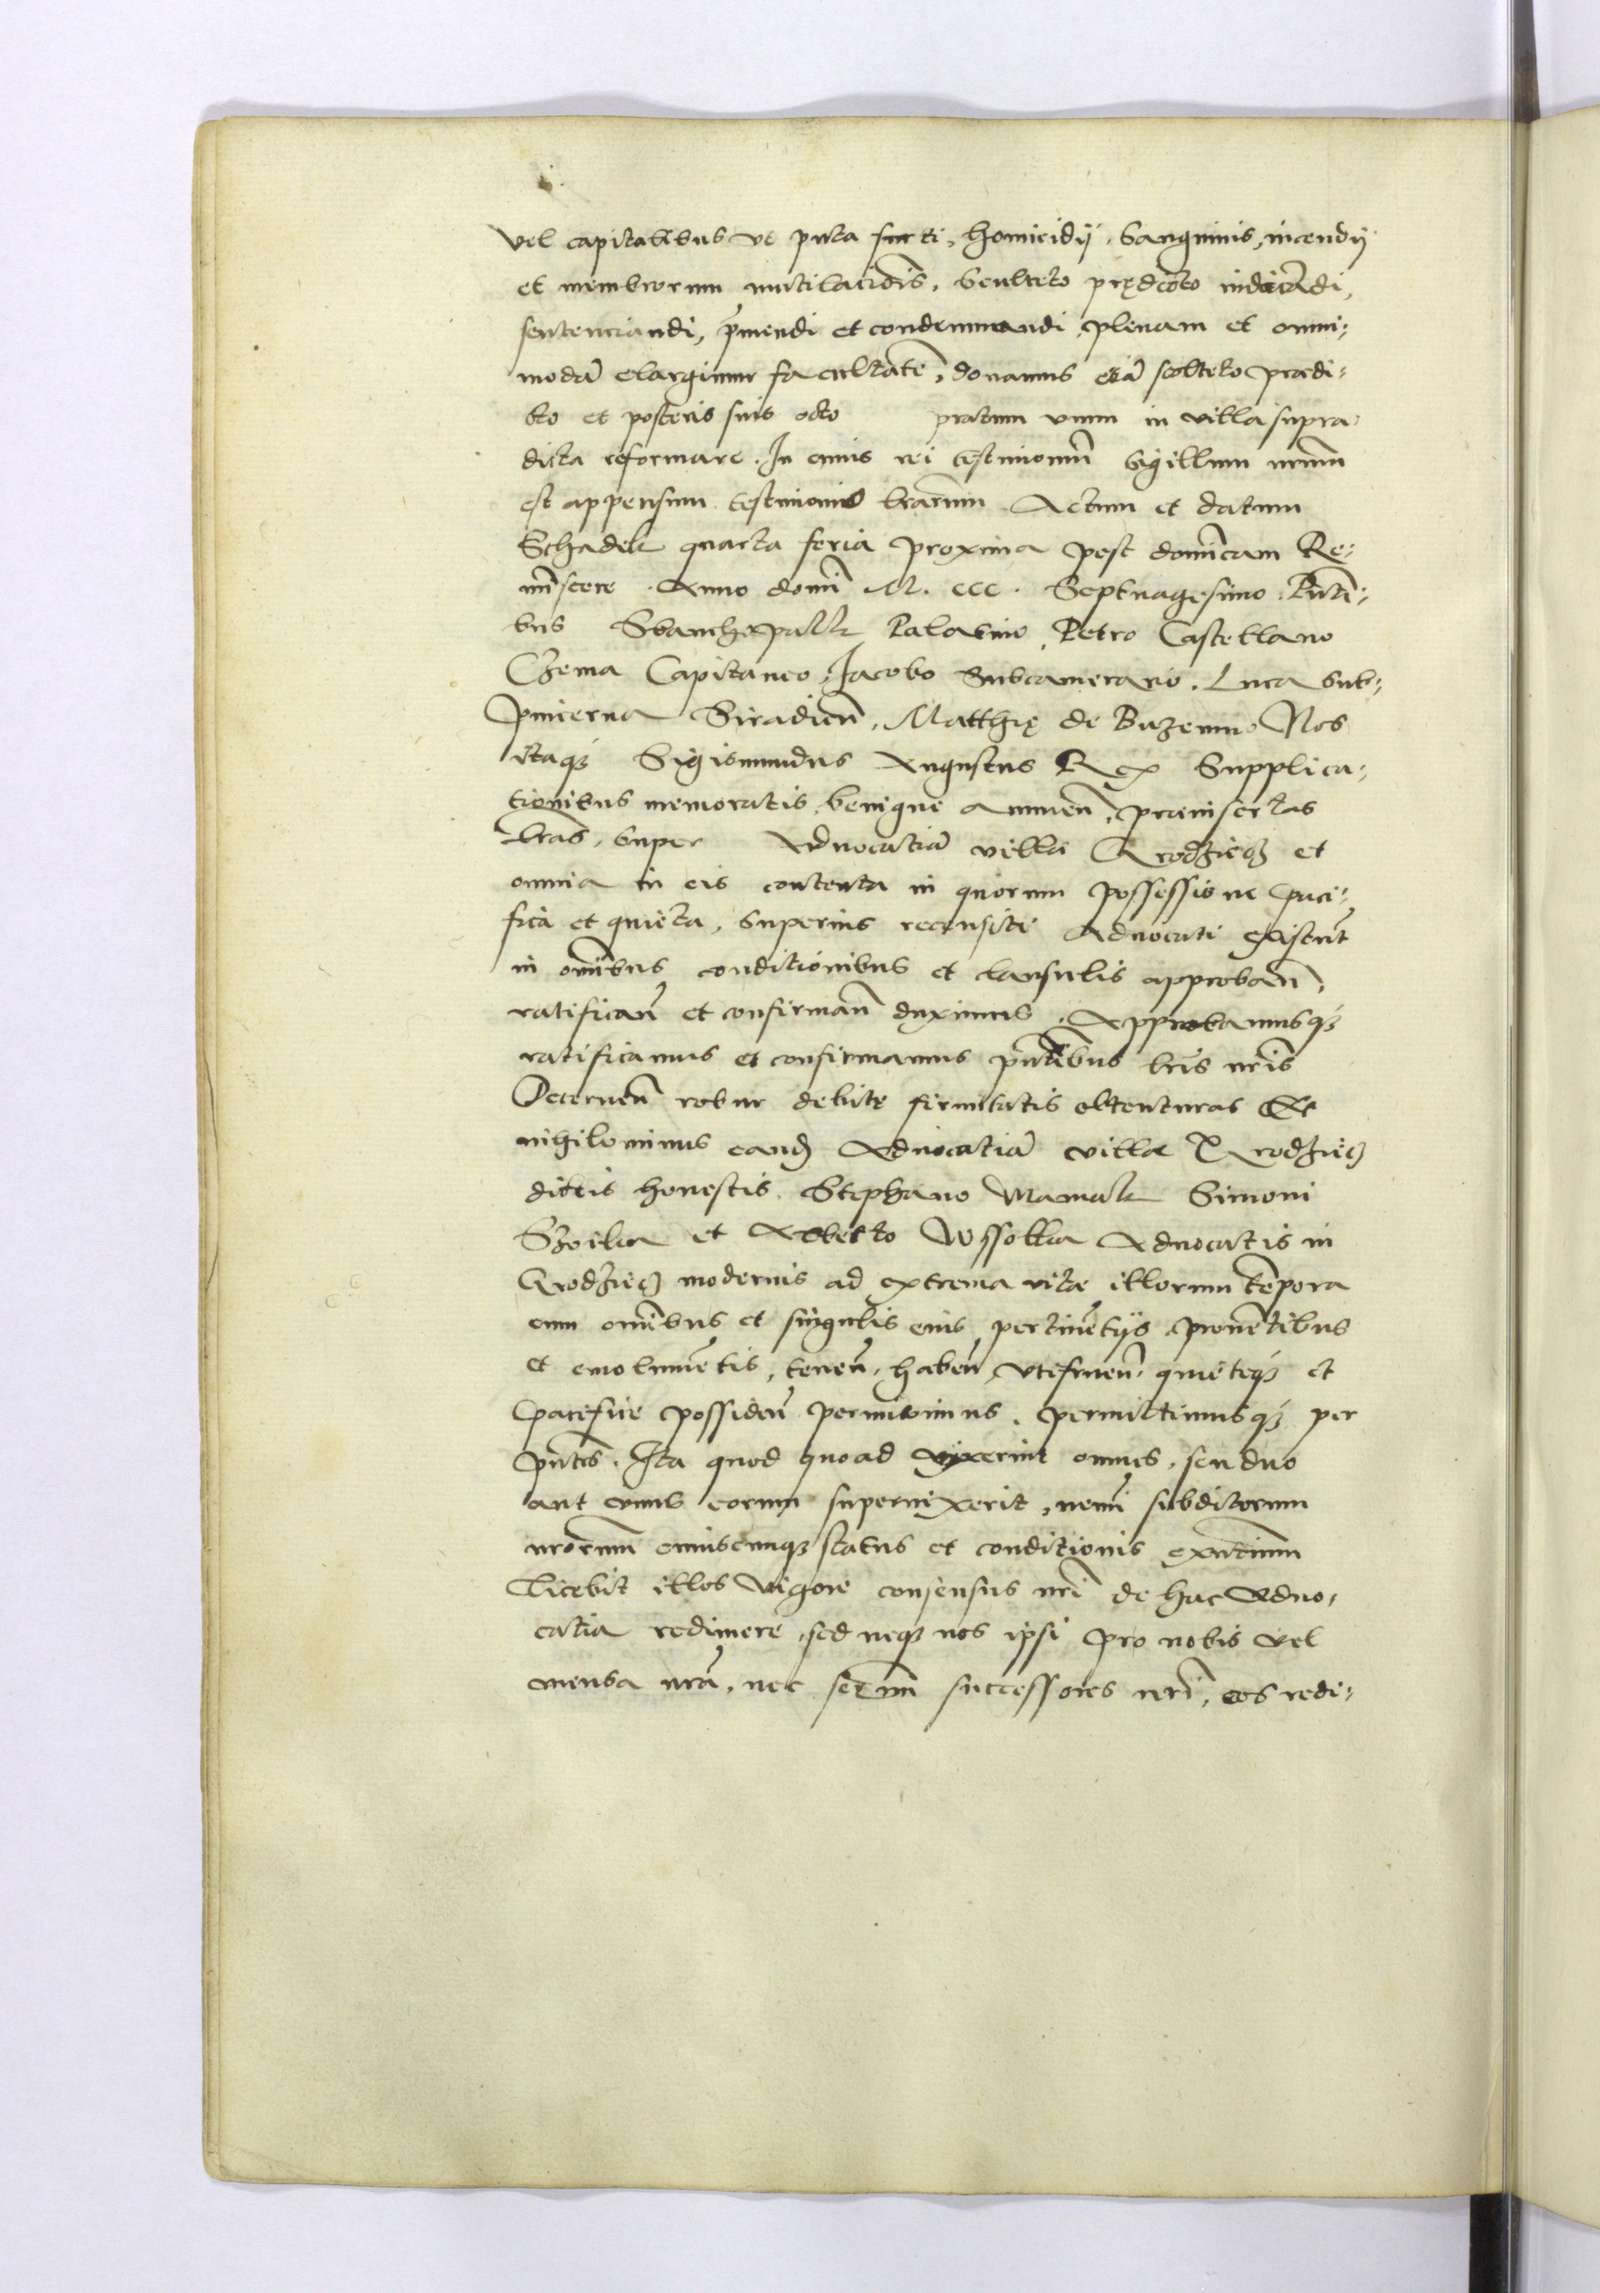 vel capitalibus vt puta furti, homicidij, sanguinis, incendij
et membrorum mutilaciōis, sculteto prędcōto iudicādi,
sentenciandi, p̄mendi et condemnandi plenam et omni-
modā elargimur facultatē, donamus etiā scolteto praedi-
cto et posteris suis octo pratum vnum in villa supra-
dicta reformare. In cuius rei testimoniū sigillum nr̄um
est appensum testimonio lr̄arum. Actum et datum
Schadek quarta feria proxima post domīcam Re-
mīscere. Anno domī M. CCC. Septuagesimo. Pn̄ti-
bus Palatino, Petro Castellano
Czema Capitaneo, Jacobo Subcamerario. Luca Sub-
pincerna Siradień, Matthię de Buzenino Nos
itaq Sigismundus Augustus Rex Supplica-
tionibus memoratis benigne annueń, praeinsertas
lr̄as, super Aduocatiā villae Grodziecz et
omnia in eis contenta in quorum possessione paci-
fica et quieta, superius recensiti Aduocati existūt
in om̄ibus conditionibus et clausulis approbań,
ratificań et confirmań duximus. Approbamusq
ratificamus et confirmamus pn̄tibus lr̄is nr̄is
Decerneń robur debitę firmitatis obtenturas Et
nihilominus eand Aduocatiā villae Grodziecz
dictis honestis Stephano Mamak Simoni
Szoilca et Alberto Wssolka Aduocatis in
Grodziecz modernis ad extrema vitae illorum tēpora
cum om̄ibus et singulis eius pertinētijs prouētibus
et emolumētis, teneń, habeń, vtifrueń, quieteq et
pacifice possideń permisimus, permittimusq per
pn̄tes. Ita quod quoad vixerint omnes, seu duo
aut vnus eorum superuixerit, nemī subditorum
nr̄orum cuiuscunq status et conditionis existētium
licebit illos vigore consensus nr̄i de hac Aduo-
catia redimere, sed neq nos ipsi pro nobis vel
mensa nr̄a, nec serm̄i successores nr̄i, eos redi-